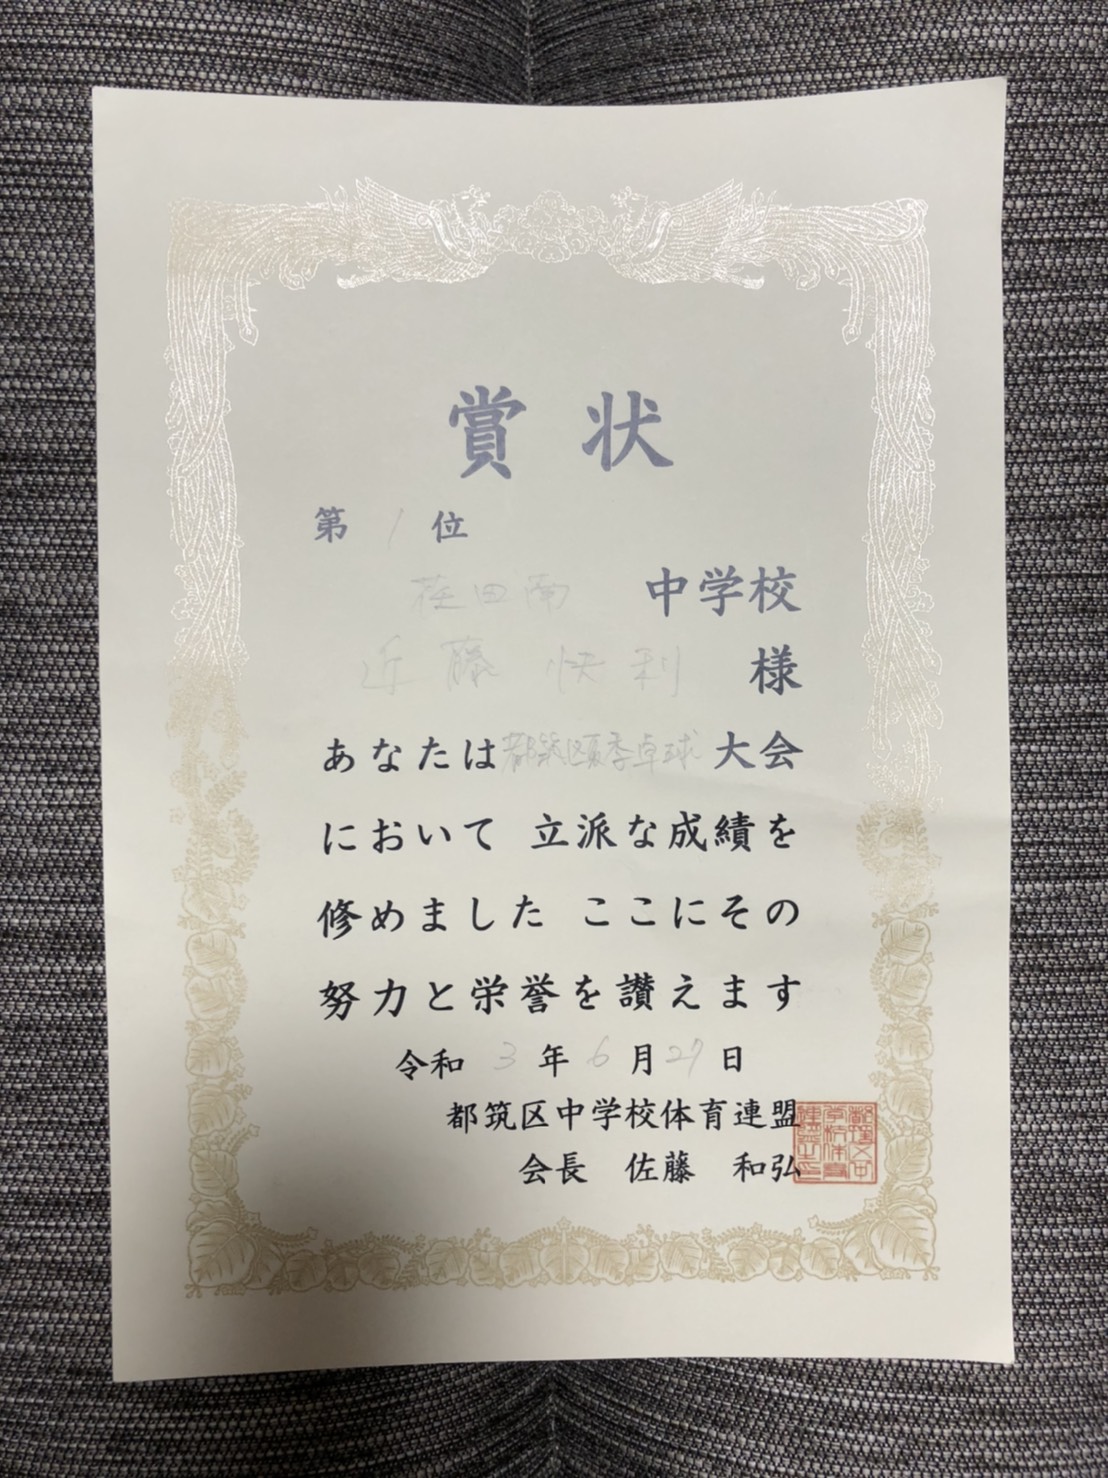 賞状
第1位
荏田南 中学校
近藤 快利 様
あなたは都筑区夏季卓球大会
において 立派な成績を
修めました ここにその
努力と栄誉を讃えます
令和 3 年 6 月 27 日
都筑区中学校体育連盟
会長 佐藤 和弘